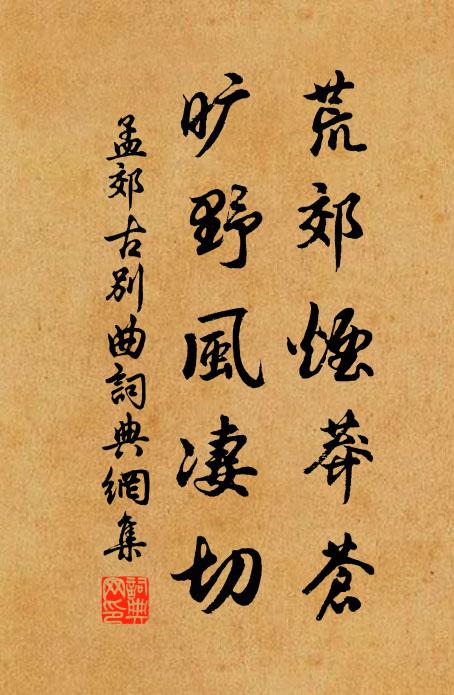 荒郊煙莽蒼
旷野風凄切
孟郊古別曲詞典網集
詞典网印